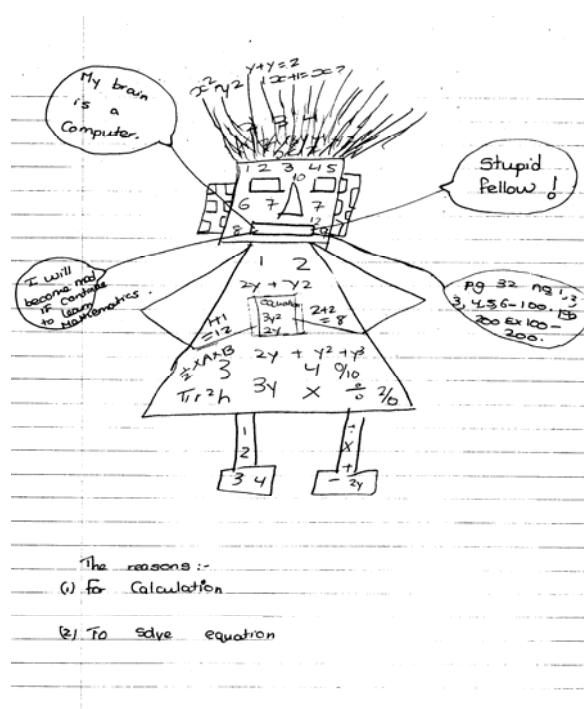 y+y=2
x² ny2
1x+1=x?
My brain
is a
Computer.
Stupid
fellow !
1 2 3 4 5
10
6 7 7
8 12
I will
become mad
If continue
to learn
Mathematics.
pg 32 no 1, 3
3, 4, 5, 6-100, 150
200 Ex 100-
200.
1 2
2y + y2
equation
3y²
2y
1+1
=12
2+2
= 8
½×A×B
2y + y² + y³
3 4 %10
πr²h 3y × ÷ 2/0
1
2
3 4
÷
×
+
- 2y
The reasons :-
(1) for Calculation
(2) To Solve equation